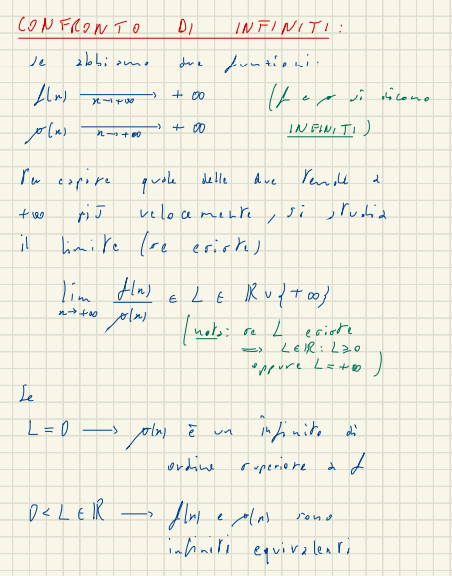 CONFRONTO DI INFINITI:
Se abbiamo due funzioni:
f(n) ⟶ +∞ (f e g si dicono
n→+∞
g(n) ⟶ +∞ INFINITI)
n→+∞
Per capire quale delle due tende a
+∞ più velocemente, si studia
il limite (se esiste)
lim f(n)/g(n) ∈ L ∈ ℝ ∪ {+∞}
n→+∞
(nota: se L esiste
⟹ L∈ℝ: L≥0
oppure L=+∞)
Se
L=0 ⟶ g(n) è un infinito di
ordine superiore a f
0<L∈ℝ ⟶ f(n) e g(n) sono
infiniti equivalenti